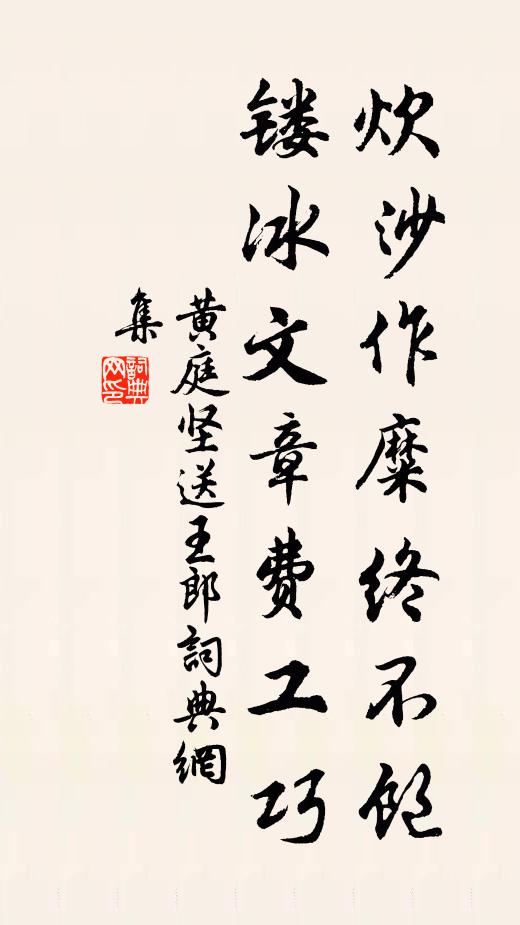 炊沙作糜终不饱
镂冰文章费工巧
黄庭坚送王郎詞典網
集
詞典网印